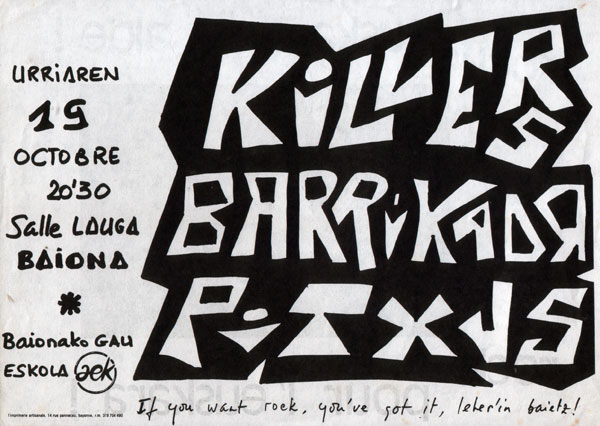 URRiAREN
19
OCTOBRE
20'30
Salle LAUGA
BAiONA
*
Baionako GAU
ESKOLA aek
KiLLERS
BARRiKADA
PiTXUS
If you want rock, you've got it, leher'in baietz!
l'imprimerie artisanale, 14 rue pannecau, bayonne. r.m. 318 704 493